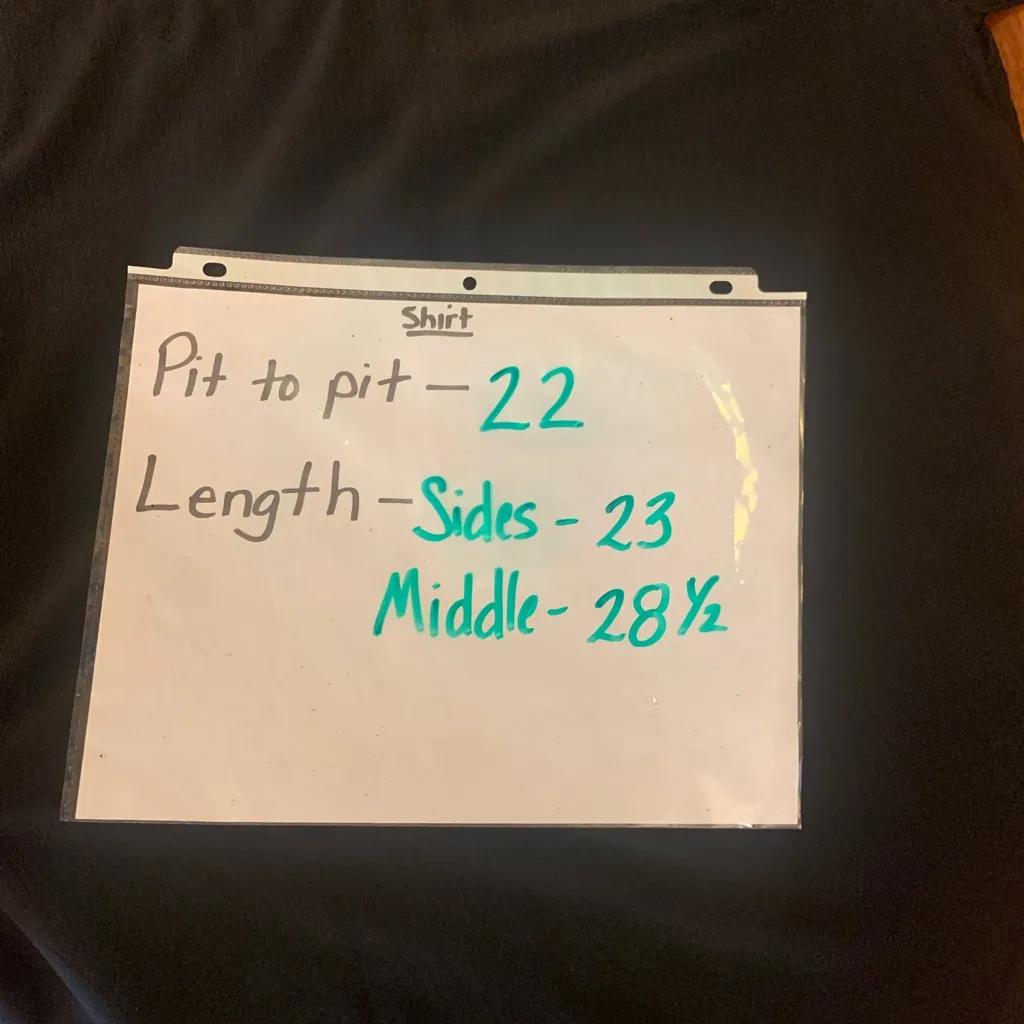 Shirt
Pit to pit - 22
Length - Sides - 23
Middle - 28 ½